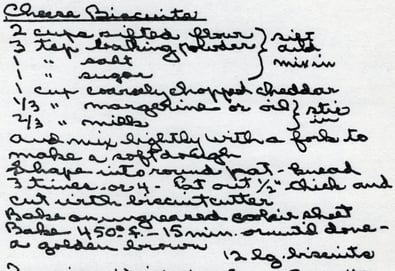 Cheese Biscuits
2 cups sifted flour } sift
3 tsp baking powder and
1 " salt mix in
1 " sugar
1 cup coarsely chopped cheddar
1/3 " margerine or oil } stir
2/3 " milk in
and mix lightly with a fork to
make a soft dough
Shape into round pat - knead
3 times or 4 - Pat out 1/2" thick and
cut with biscuit cutter
Bake on ungreased cookie sheet
Bake 450° F. - 15 min. or until done -
a golden brown
12 lg. biscuits